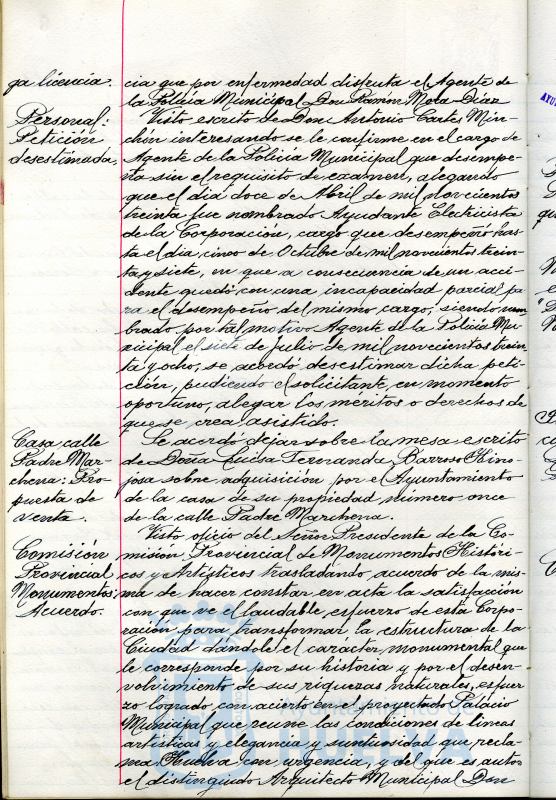 ga licencia.
cia que por enfermedad disfruta el Agente de
la Policia Municipal Don Ramón Mora Díaz
Personal:
Petición
desestimada.
Visto escrito de Don Antonio Cartes Min-
chón interesando se le confirme en el cargo de
Agente de la Policia Municipal que desempe-
ña sin el requisito de examen, alegando
que el dia doce de Abril de mil novecientos
treinta fue nombrado Ayudante Electricista
de la Corporación, cargo que desempeñó has-
ta el dia cinco de Octubre de mil novecientos trein-
ta y siete, en que a consecuencia de un acci-
dente quedó con una incapacidad parcial pa-
ra el desempeño del mismo cargo, siendo nom-
brado por tal motivo Agente de la Policia Mu-
nicipal el siete de Julio de mil novecientos trein-
ta y ocho, se acordó desestimar dicha peti-
ción, pudiendo el solicitante, en momento
oportuno, alegar los méritos o derechos de
que se crea asistido.
Casa calle
Padre Mar-
chena: Pro-
puesta de
venta.
Se acordó dejar sobre la mesa escrito
de Doña Luisa Fernanda Barroso Hino-
josa sobre adquisición por el Ayuntamiento
de la casa de su propiedad número once
de la calle Padre Marchena.
Comisión
Provincial
Monumentos:
Acuerdo.
Visto oficio del Señor Presidente de la Co-
misión Provincial de Monumentos Históri-
cos y Artísticos trasladando acuerdo de la mis-
ma de hacer constar en acta la satisfacción
con que ve el laudable esfuerzo de esta Corpo-
ración para transformar la estructura de la
Ciudad dándole el carácter monumental que
le corresponde por su historia y por el desen-
volvimiento de sus riquezas naturales, esfuer-
zo logrado con acierto en el proyectado Palacio
Municipal que reune las condiciones de lineas
artísticas y elegancia y suntuosidad que recla-
ma Huelva con urgencia, y del que es autor
el distinguido Arquitecto Municipal Don
HUELVA